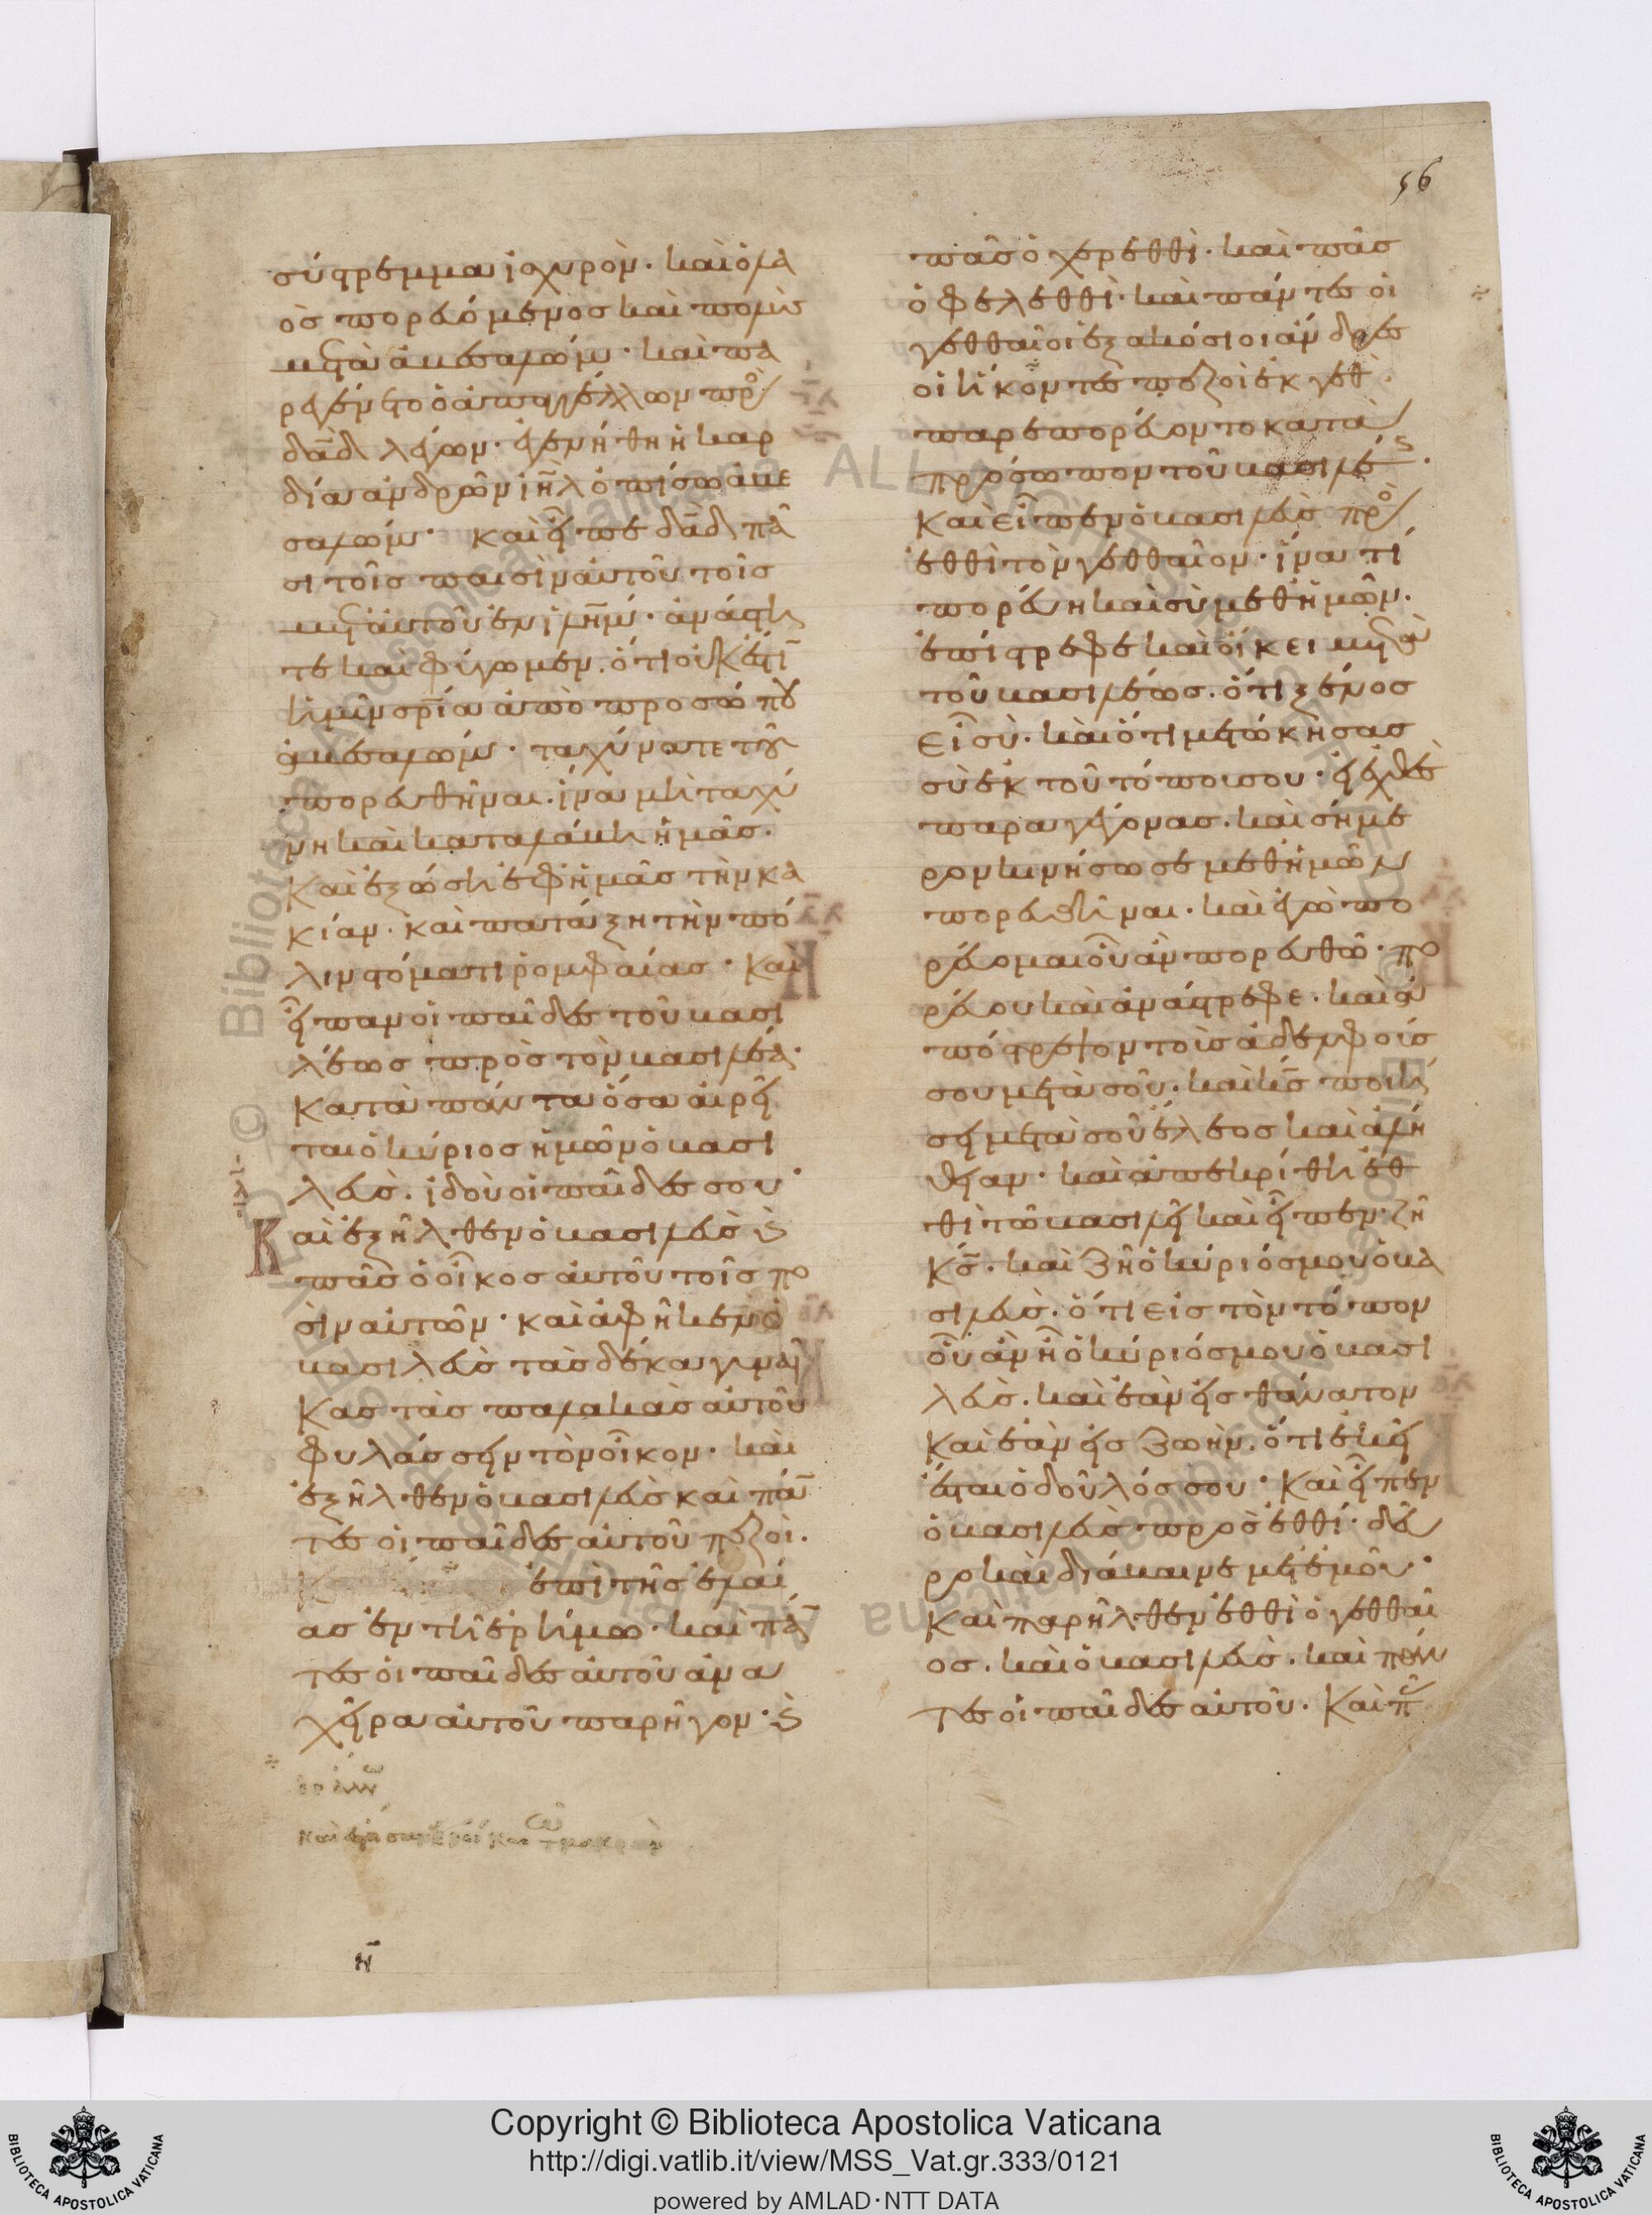 56
σύστρεμμα ἰσχυρόν· καὶ ὁ λα
ὸς πορευόμενος καὶ πολὺς
μετὰ ἀβεσαλώμ· καὶ πα
ρεγένετο ὁ ἀπαγγέλλων πρὸς
δαδ λέγων· ἐγενήθη ἡ καρ
δία ἀνδρῶν ιηλ ὀπίσω ἀβε
σαλώμ· καὶ εἶπε δαδ πᾶ
σι τοῖς παισὶν αὐτοῦ τοῖς
μετ αὐτοῦ ἐν ιλημ· ἀνάστη
τε καὶ φύγωμεν. ὅτι οὐκ ἔστι
ἡμῖν σρία ἀπὸ προσώπου
ἀβεσαλώμ· ταχύνατε τοῦ
πορευθῆναι. ἵνα μὴ ταχύ
νη καὶ καταλάβη ἡμᾶς.
καὶ ἐξώση ἐφ ἡμᾶς τὴν κα
κίαν· καὶ πατάξη τὴν πό
λιν στόματι ῥομφαίας· Καὶ
εἶπαν οἱ παῖδες τοῦ βασι
λέως πρὸς τὸν βασιλέα·
Κατὰ πάντα ὅσα αἱρεῖ
ται ὁ κύριος ἡμῶν ὁ βασι
λεὺς. ἰδοὺ οἱ παῖδες σου·
Καὶ ἐξῆλθεν ὁ βασιλεὺς ϗ
πᾶς ὁ οἶκος αὐτοῦ τοῖς πο
σὶν αὐτῶν· καὶ ἀφῆκεν ὁ
βασιλεὺς τὰς δέκα γυναῖ
κας τὰς παλακὰς αὐτοῦ
φυλάσσειν τὸν οἶκον· καὶ
ἐξῆλθεν ὁ βασιλεὺς καὶ πάν
τες οἱ παῖδες αὐτοῦ πεζοὶ.
ἐπὶ τῆς ἐλαί
ας ἐν τῆ ἐρήμω· καὶ πάν
τες οἱ παῖδες αὐτοῦ ἀνα
χεῖρα αὐτοῦ παρῆγον· ϗ
η
πᾶς ὁ χερεθθὶ· καὶ πᾶς
ὁ φελεθθὶ· καὶ πάντες οἱ
γεθθαῖοι ἑξακόσιοι ἄνδρες
οἱ ἥκοντες πεζοὶ ἐκ γὲθ·
παρεπορεύοντο κατὰ
πρόσωπον τοῦ βασιλέως·
Καὶ εἶπεν ὁ βασιλεὺς πρὸς
ἐθθὶ τὸν γεθθαῖον· ἵνα τί
πορεύη καὶ σὺ μεθ ἡμῶν.
ἐπίστρεφε καὶ οἴκει μετὰ
τοῦ βασιλέως. ὅτι ξένος
εἶ σὺ. καὶ ὅτι μετώκησας
σὺ ἐκ τοῦ τόπου σου· εἰ ἐχθὲς
παραγέγονας. καὶ σήμε
ρον κινήσω σε μεθ ἡμῶν
πορευθῆναι. καὶ ἐγὼ πο
ρεύομαι οὗ ἂν πορευθῶ· πο
ρεύου καὶ ἀνάστρεφε. καὶ ἀ
πόστρεψον τοὺς ἀδελφούς
σου μετὰ σοῦ· καὶ κς ποιή
σει μετὰ σοῦ ἔλεος καὶ ἀλή
θειαν· καὶ ἀπεκρίθη ἐθ
θὶ τῶ βασιλεῖ καὶ εἶπεν· ζῆ
κς. καὶ ζῆ ὁ κύριός μου ὁ βα
σιλεὺς. ὅτι εἰς τὸν τόπον
οὗ ἂν ἦ ὁ κύριός μου ὁ βασι
λεὺς. καὶ ἐὰν εἰς θάνατον
καὶ ἐὰν εἰς ζωήν. ὅτι ἐκεῖ
ἔσται ὁ δοῦλός σου· Καὶ εἶπεν
ὁ βασιλεὺς πρὸς ἐθθί· δεῦ
ρο καὶ διάβαινε μετ ἐμοῦ·
Καὶ παρῆλθεν ἐθθὶ ὁ γεθθαῖ
ος. καὶ ὁ βασιλεὺς. καὶ πάν
τες οἱ παῖδες αὐτοῦ. Καὶ π
Copyright © Biblioteca Apostolica Vaticana
http://digi.vatlib.it/view/MSS_Vat.gr.333/0121
powered by AMLAD·NTT DATA
BIBLIOTECA APOSTOLICA VATICANA
BIBLIOTECA APOSTOLICA VATICANA